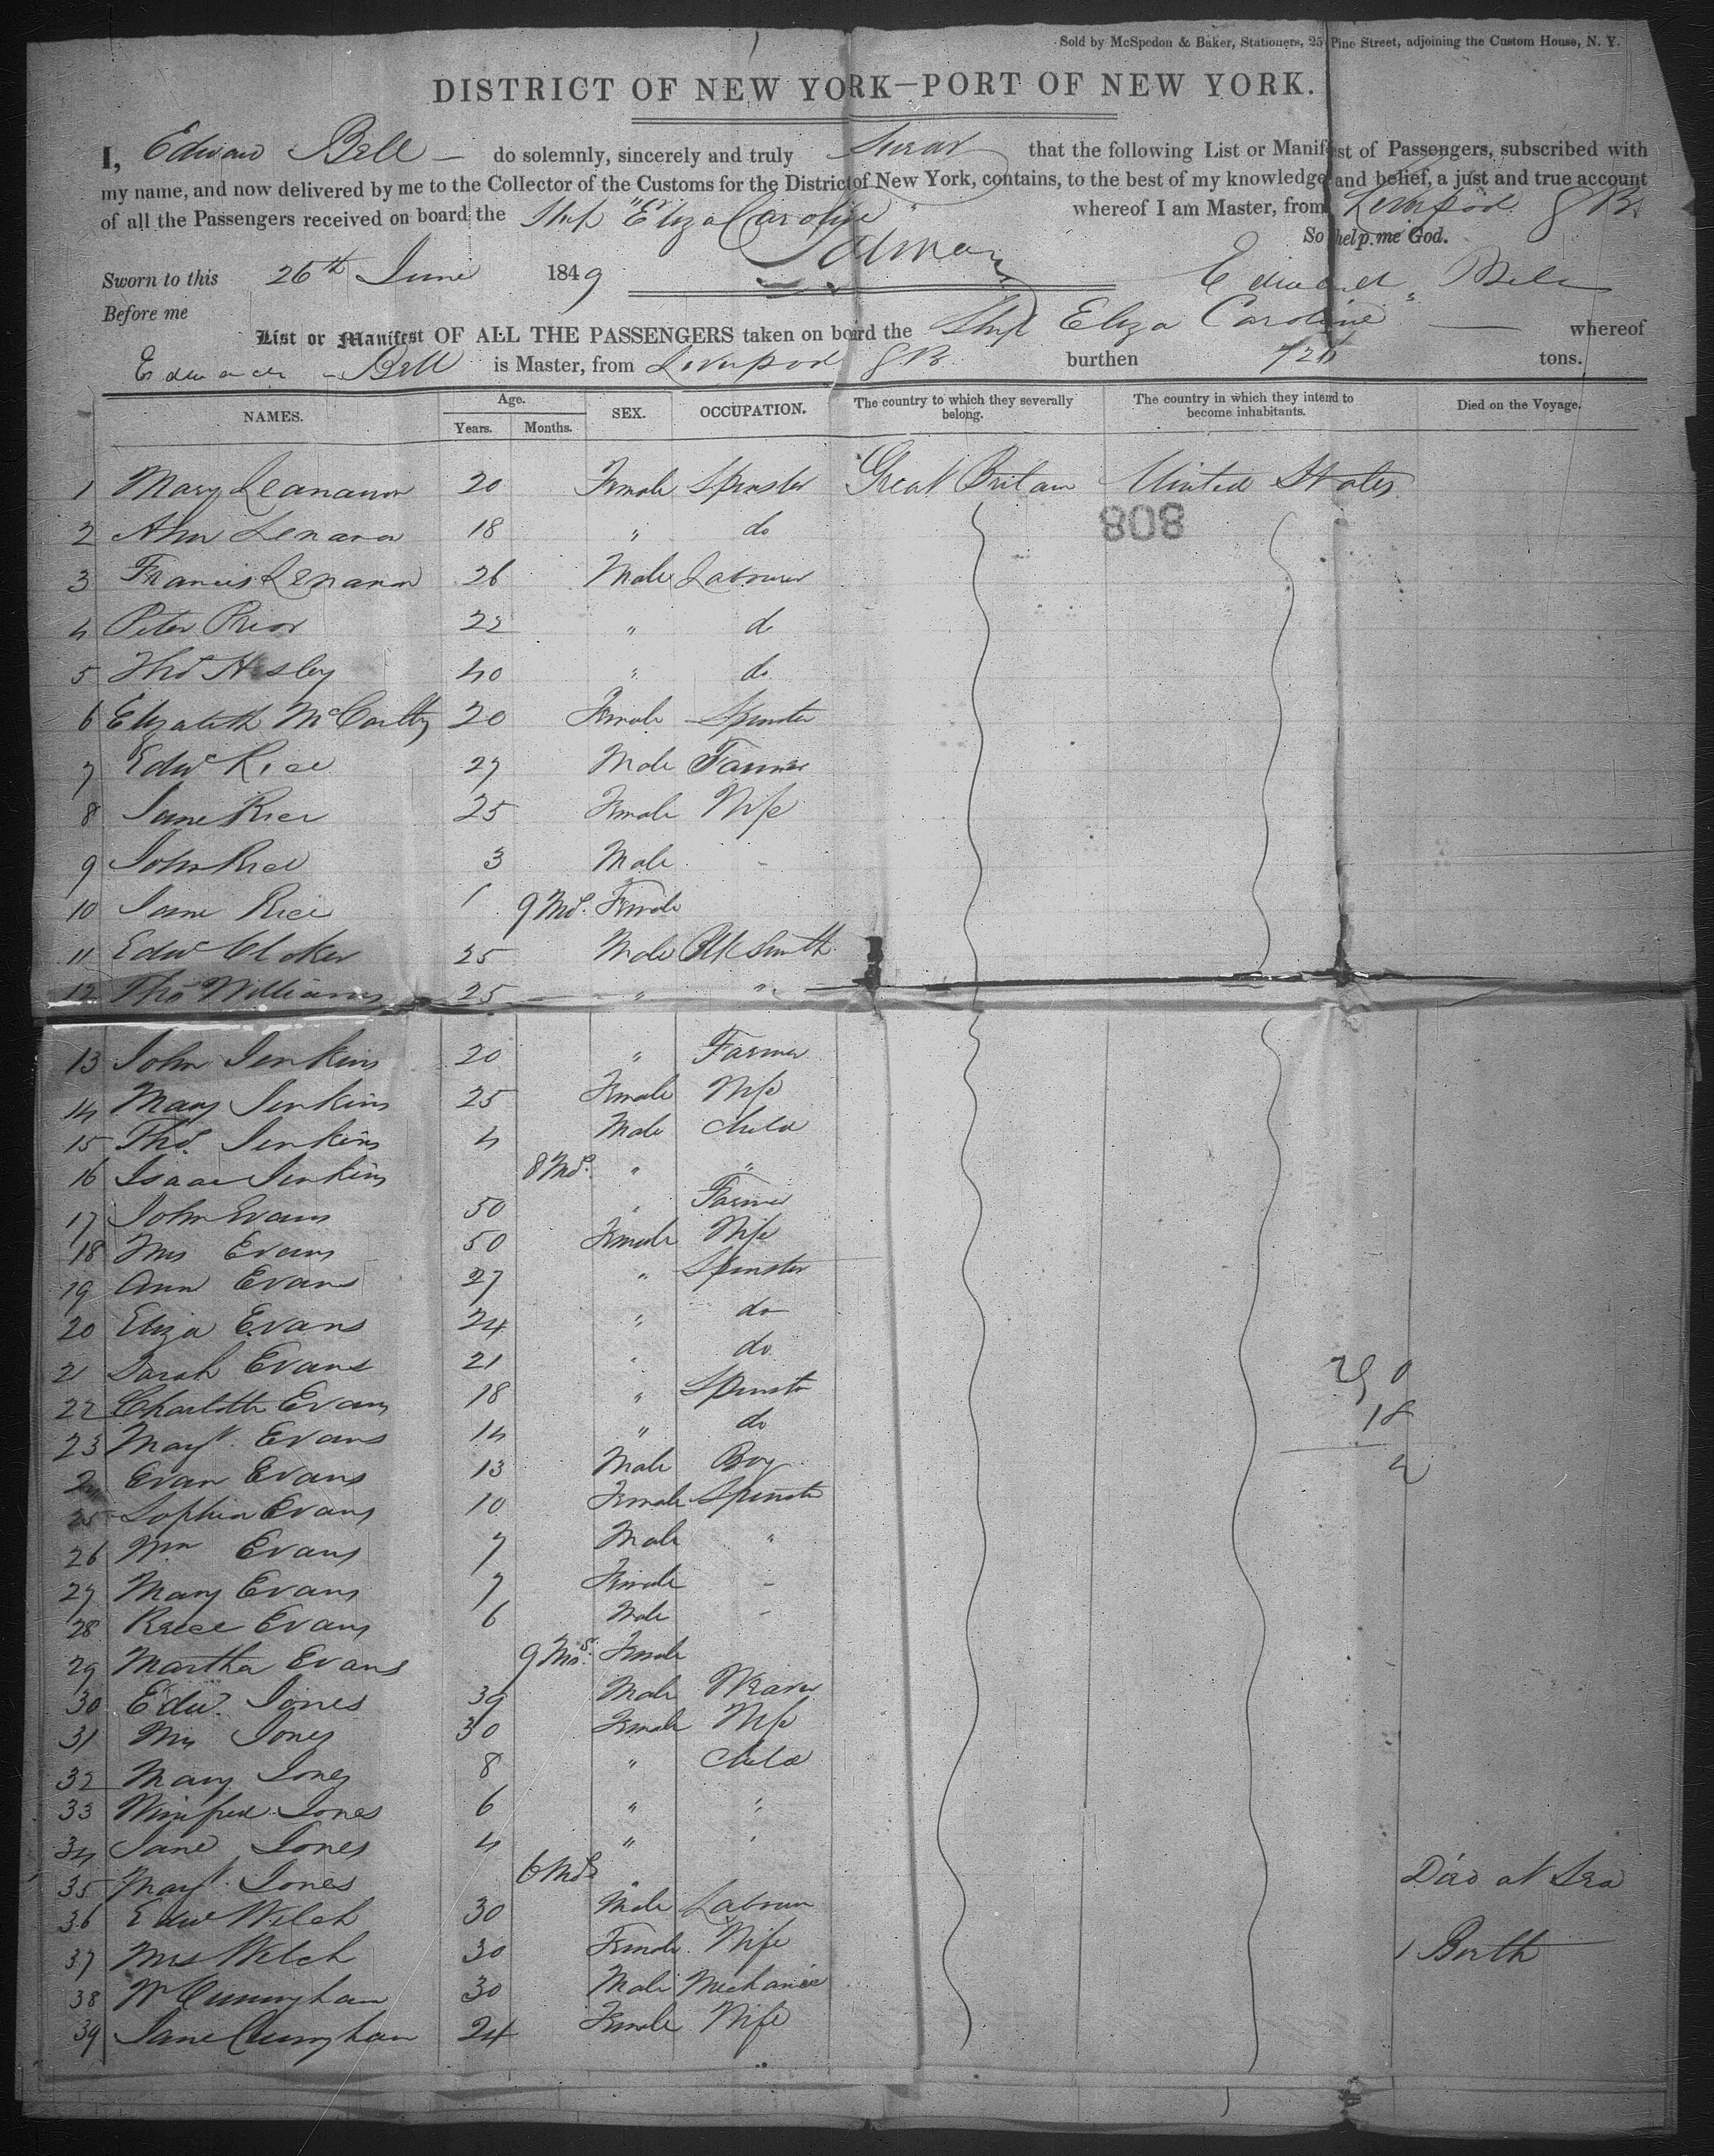 Sold by McSpedon & Baker, Stationers, 25 Pine Street, adjoining the Custom House, N. Y.
DISTRICT OF NEW YORK—PORT OF NEW YORK.
I, Edward Bell — do solemnly, sincerely and truly Swear that the following List or Manifest of Passengers, subscribed with
my name, and now delivered by me to the Collector of the Customs for the District of New York, contains, to the best of my knowledge and belief, a just and true account
of all the Passengers received on board the Ship "Eliza Caroline" whereof I am Master, from Liverpool G B.
So help me God.
Sworn to this 26th June 1849 Edward Bell
Before me
List or Manifest OF ALL THE PASSENGERS taken on board the Ship Eliza Caroline — whereof
Edward Bell is Master, from Liverpool G B. burthen 726 tons.
NAMES. Age. Years. Months. SEX. OCCUPATION. The country to which they severally belong. The country in which they intend to become inhabitants. Died on the Voyage.
1 Mary Leananon 20 Female Spinster Great Britain United States
808
2 Ann Lenanon 18 " do
3 Francis Lenanon 26 Male Labourer
4 Peter Prior 22 " do
5 Thos 40 " do
6 Elizabeth McCarthy 20 Female Spinster
7 Edwd Rice 27 Male Farmer
8 Jane Rice 25 Female Wife
9 John Rice 3 Male -
10 Jane Rice 1 9 Mos. Female
11 Edwd Cloker 25 Male Blk Smith
12 Thos Williams 25 " "
13 John Jenkins 20 " Farmer
14 Mary Jenkins 25 Female Wife
15 Thos. Jenkins 4 Male Child
16 Isaac Jenkins 8 Mos. " "
17 John Evans 50 " Farmer
18 Mrs Evans 50 Female Wife
19 Ann Evans 27 " Spinster
20 Eliza Evans 24 " do
21 Sarah Evans 21 " do
22 Charlotte Evans 18 " Spinster
23 Margt. Evans 14 " do
18
24 Evan Evans 13 Male Boy
2
25 Sophia Evans 10 Female Spinster
26 Wm Evans 7 Male "
27 Mary Evans 7 Female -
28 Reece Evans 6 Male -
29 Martha Evans 9 Mos. Female
30 Edwd. Jones 39 Male Weaver
31 Mrs Jones 30 Female Wife
32 Mary Jones 8 " Child
33 Winifred Jones 6 " "
34 Jane Jones 4 " "
35 Margt. Jones 6 Mos " Died at Sea
36 Edwd Welch 30 Male Labourer
37 Mrs Welch 30 Female Wife 1 Birth
38 Wm Cuningham 30 Male Mechanic
39 Jane Cuningham 24 Female Wife